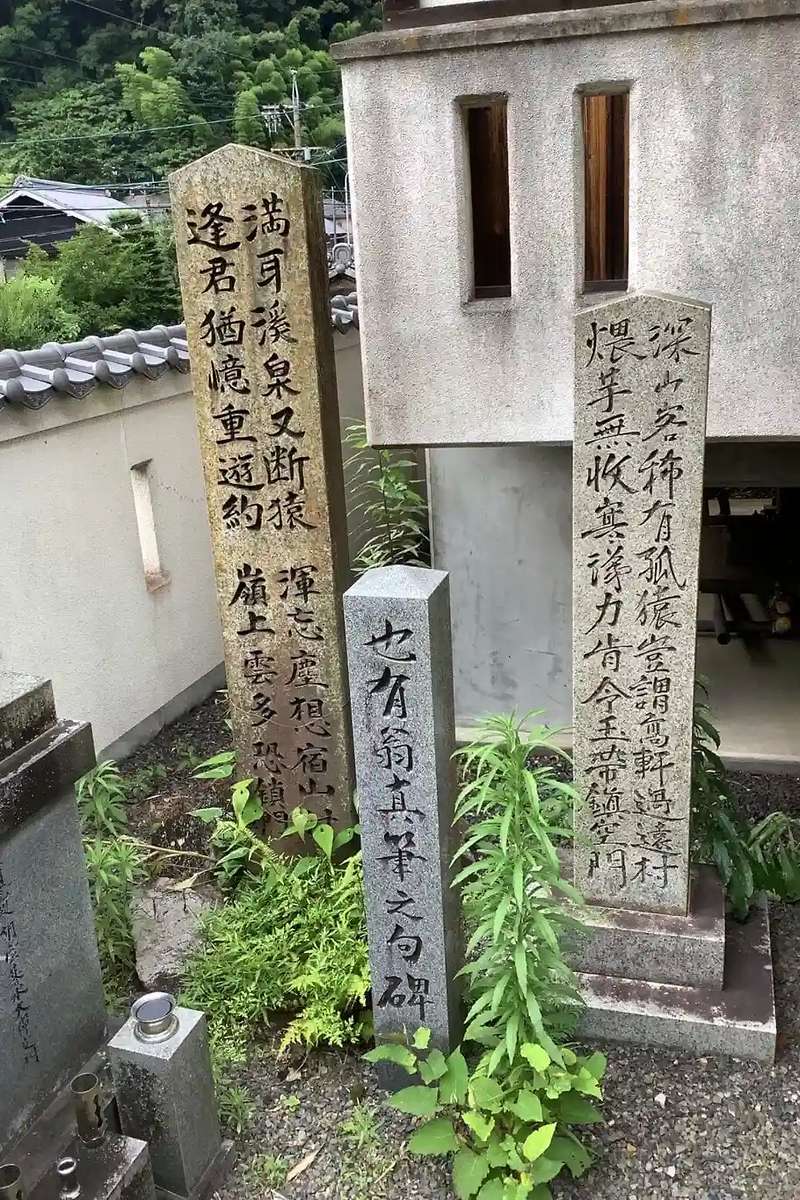 深山客稀有孤猿豈謂高軒過遠村
煨芋無收寒涕力肯令玉帯鎮空門
也有翁真筆之句碑
満耳溪泉又断猿 渾忘塵想宿山村
逢君猶憶重遊約 嶺上雲多恐鎖門